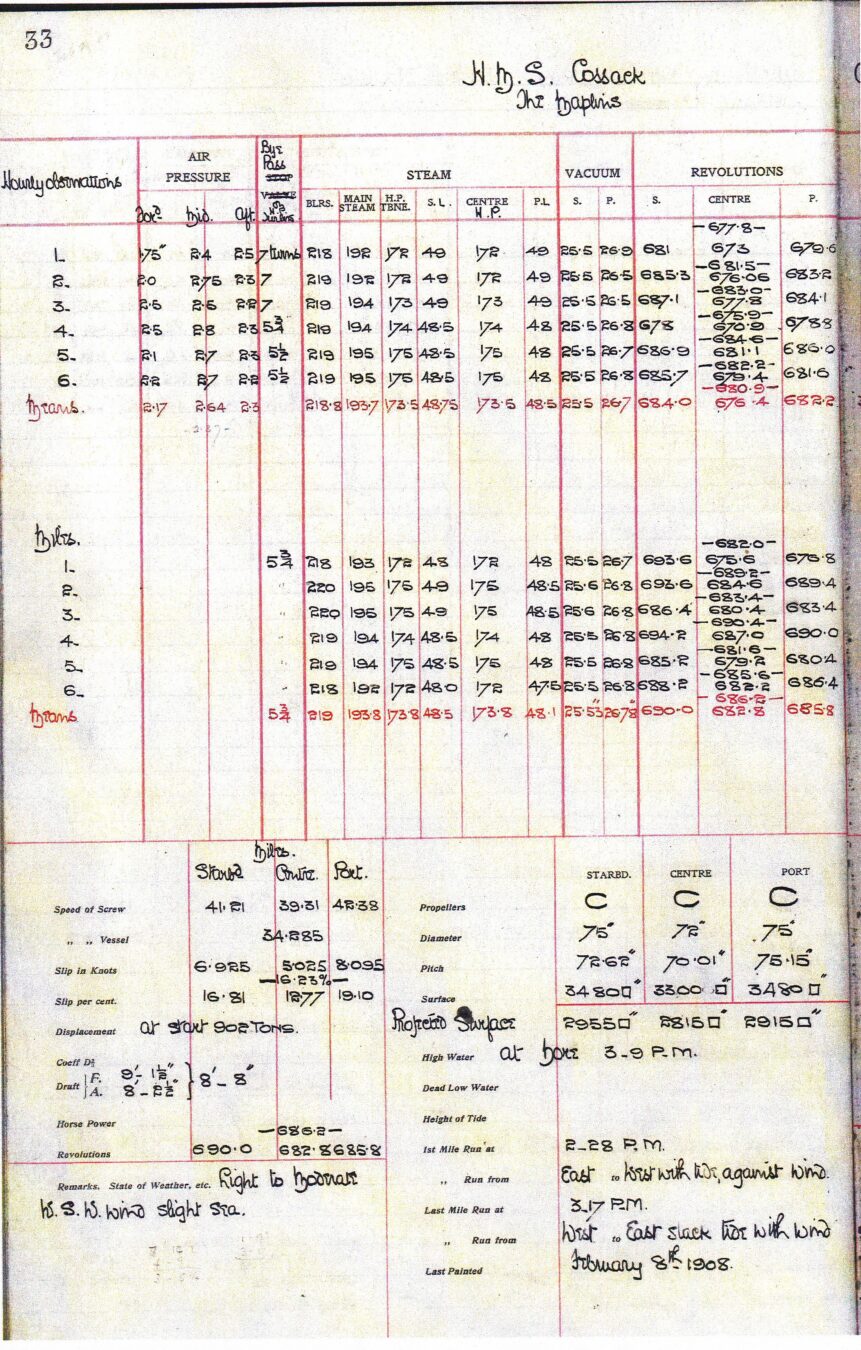 33
H.M.S. Cossack
The Maplins
Hourly observations AIR PRESSURE Bye Pass STEAM VACUUM REVOLUTIONS
For'd Mid. Aft. BLRS. MAIN STEAM H.P. TBNE. S.L. CENTRE H.P. P.L. S. P. S. CENTRE P.
—677.8—
1_ .75" 2.4 2.5 7 turns 218 192 172 49 172 49 25.5 26.9 681 673 679.6
—681.5—
2_ 2.0 2.75 2.3 7 219 192 172 49 172 49 25.5 26.5 685.3 676.06 683.2
—683.0—
3_ 2.6 2.6 2.2 7 219 194 173 49 173 49 25.5 26.5 687.1 677.8 684.1
—675.9—
4_ 2.5 2.8 2.3 5¾ 219 194 174 48.5 174 48 25.5 26.8 678 670.9 678.8
—684.6—
5_ 2.1 2.7 2.3 5½ 219 195 175 48.5 175 48 25.5 26.7 686.9 681.1 686.0
—682.2—
6_ 2.2 2.7 2.2 5½ 219 195 175 48.5 175 48 25.5 26.8 685.7 679.4 681.6
—680.9—
Means. 2.17 2.64 2.3 218.8 193.7 173.5 48.75 173.5 48.5 25.5 26.7 684.0 676.4 682.2
Miles.
—682.0—
1_ 5¾ 218 193 172 48 172 48 25.5 26.7 693.6 675.6 676.8
—689.2—
2_ " 220 195 176 49 175 48.5 25.6 26.8 693.6 684.6 689.4
—683.4—
3_ " 220 195 175 49 175 48.5 25.6 26.8 686.4 680.4 683.4
—690.4—
4_ " 219 194 174 48.5 174 48 25.5 26.8 694.2 687.0 690.0
—681.6—
5_ " 219 194 175 48.5 175 48 25.5 26.8 685.2 679.2 680.4
—685.6—
6_ " 218 192 172 48.0 172 47.5 25.5 26.8 688.2 682.2 686.4
—686.2—
Means 5¾ 219 193.8 173.8 48.5 173.8 48.1 25.53" 26.78" 690.0 682.8 685.8
Miles.
Starbd Centre. Port.
Speed of Screw 41.21 39.31 42.38
„ „ Vessel 34.285
Slip in Knots 6.925 5.025 8.095
—16.23%—
Slip per cent. 16.81 12.77 19.10
Displacement at start 902 Tons.
Coeff D⅔
Draft { F. 9'- 1½" A. 8'- 2½" } 8'- 8"
Horse Power
—686.2—
Revolutions 690.0 682.8 685.8
Remarks. State of Weather, etc. Light to Moderate
W.S.W. wind slight sea.
STARBD. CENTRE PORT
Propellers C C C
Diameter 75" 72" 75"
Pitch 72.62" 70.01" 75.15"
Surface 3480□" 3300□" 3480□"
Projected Surface 2955□" 2815□" 2915□"
High Water at Nore 3-9 P.M.
Dead Low Water
Height of Tide
1st Mile Run at 2-28 P.M.
„ Run from East to West with tide, against wind.
Last Mile Run at 3.17 P.M.
„ Run from West to East slack tide with wind
Last Painted February 8th 1908.